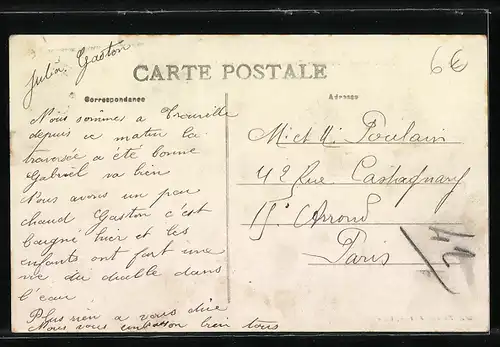 Julia Gaston
6€
CARTE POSTALE
Correspondance
Adresse
Nous sommes a Trouville
depuis ce matin la
traversée a été bonne
Gabriel va bien
Nous avons un peu
chaud Gaston c'est
baigné hier et les
enfants ont fait une
vie du diable dans
l'eau
Plus rien a vous dire
Nous vous embrasson bien tous
M et Me Poulain
42 Rue Castagnary
15e Arrond
Paris
42